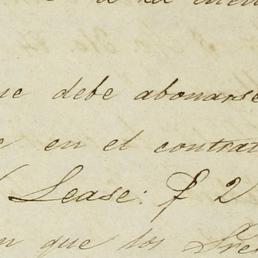 a la
ue debe abonarse
e en el contrat
Lease: f 2
n que los Pre